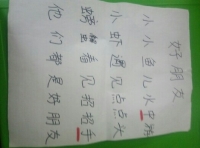 好朋友
小小鱼儿水中游
小虾遇见点点头
螃蟹看见招招手
他们都是好朋友